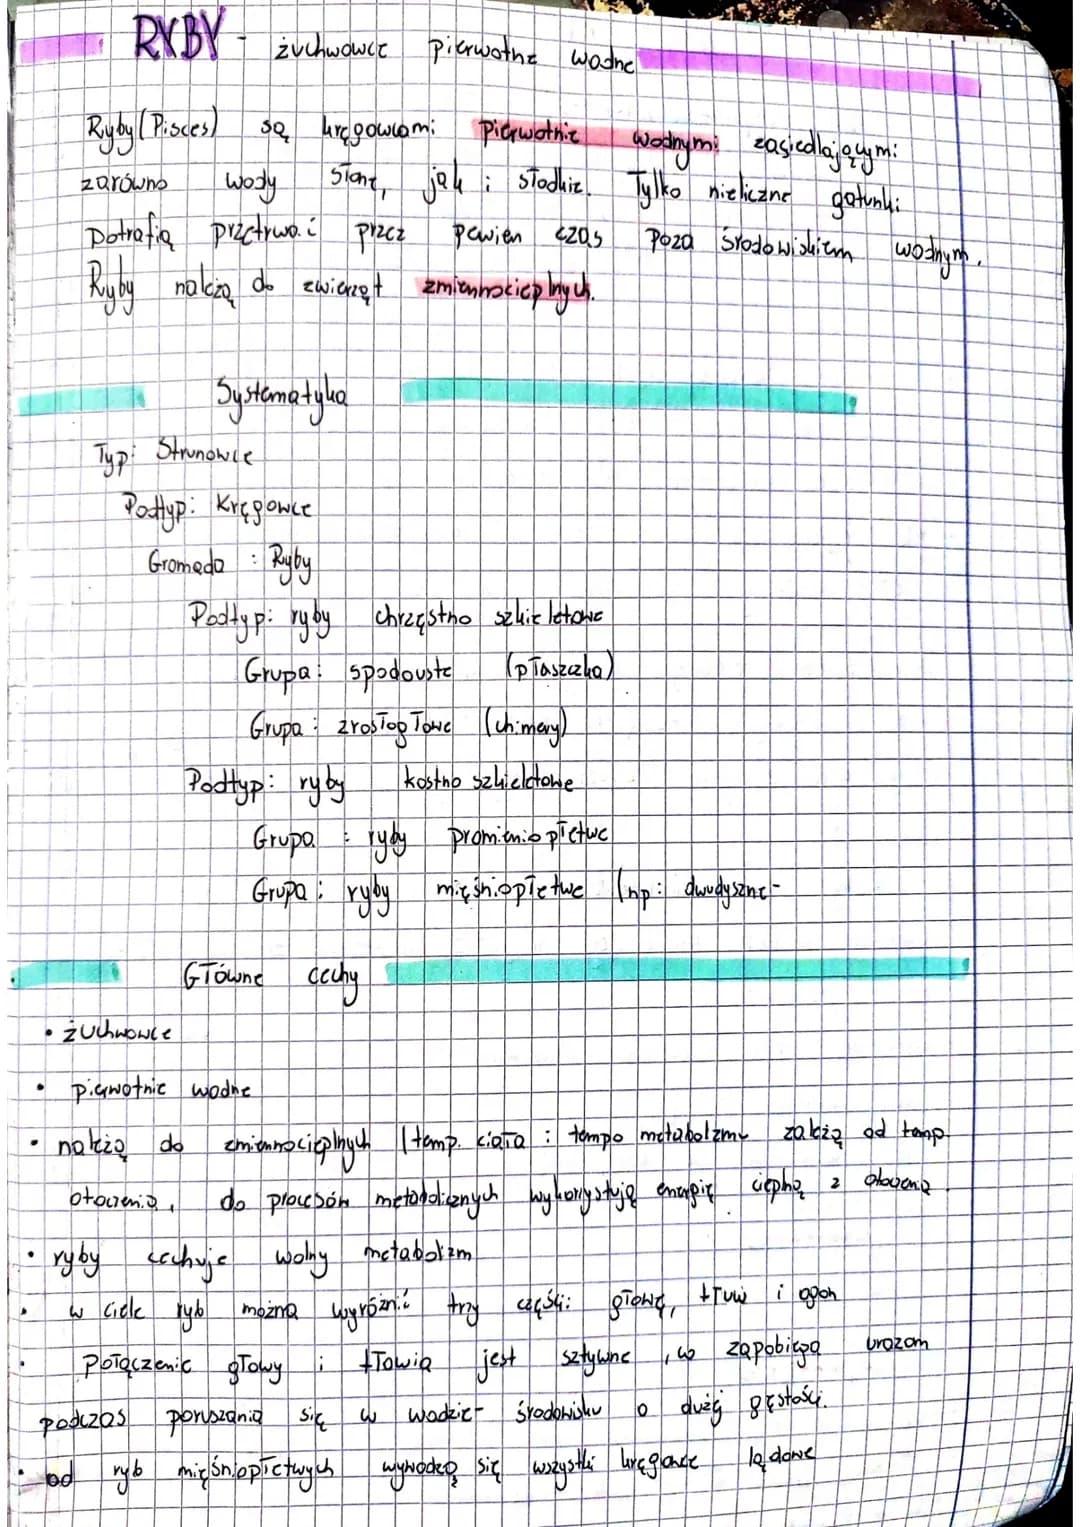 RYBY - żuchwowce pierwotne wodne
Ryby (Pisces) są kręgowcami pierwotnie wodnymi zasiedlającymi
zarówno wody słone, jak i słodkie. Tylko nieliczne gatunki
potrafią przetrwać przez pewien czas poza środowiskiem wodnym.
Ryby należą do zwierząt zmiennocieplnych.
Systematyka
Typ: Strunowce
Podtyp: Kręgowce
Gromada : Ryby
Podtyp: ryby chrzęstno szkieletowe
Grupa: spodouste (płaszczka)
Grupa : zrosłogłowe (chimery)
Podtyp: ryby kostno szkieletowe
Grupa : ryby promieniopłetwe
Grupa : ryby mięśniopłetwe (np: dwudyszne-
Główne cechy
• żuchwowce
• pierwotnie wodne
• należą do zmiennocieplnych (temp. ciała i tempo metabolzmu zależą od temp.
otoczenia, do procesów metabolicznych wykorzystują energię cieplną z otoczenia.
• ryby cechuje wolny metabolizm
• w ciele ryb można wyróżnić trzy części: głowę, tłuw i ogon
• połączenie głowy i tłowia jest sztywne, co zapobiega urazom
podczas poruszania się w wodzie- środowisku o dużej gęstości.
• od ryb mięśniopłetwych wywodzą się wszystkie kręgowce lądowe